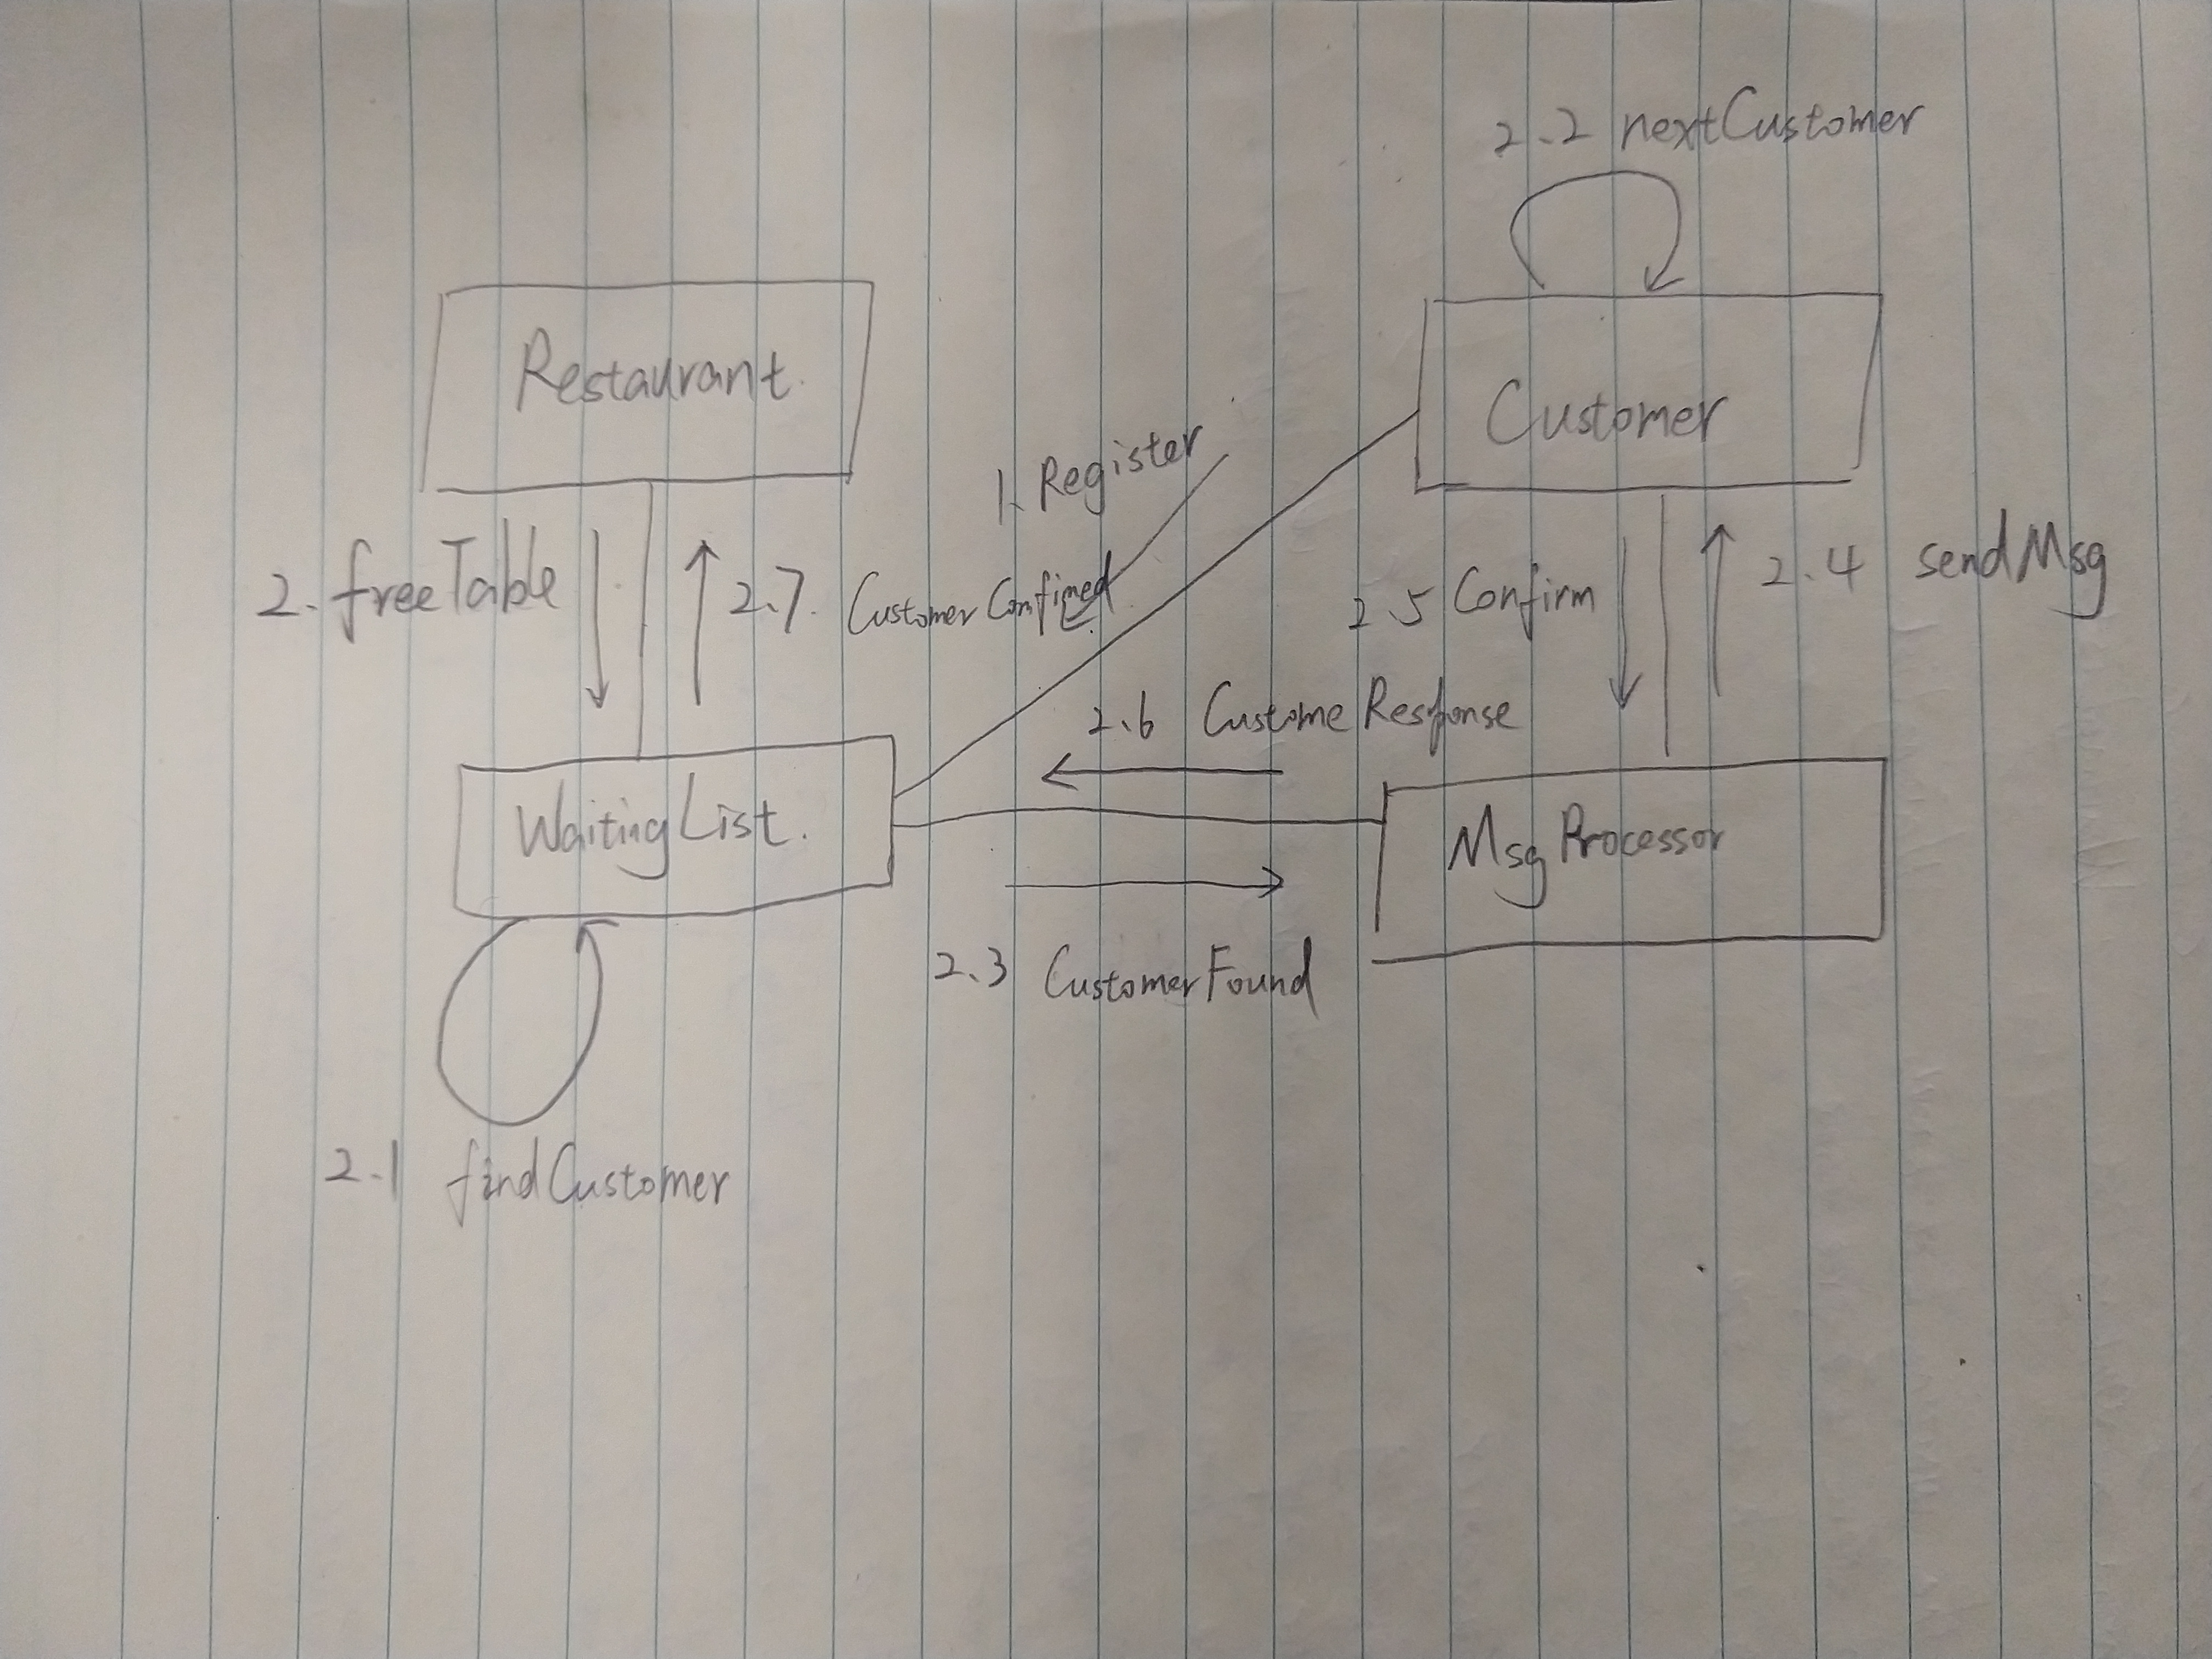 2.2 nextCustomer
Restaurant.
Customer
1. Register
2. freeTable
2.7. CustomerConfimed
2.5 Confirm
2.4 sendMsg
2.6 CustomeResponse
WaitingList.
MsgProcessor
2.3 CustomerFound
2.1 findCustomer